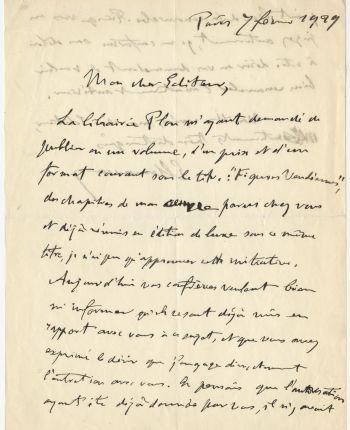 Paris 7 février 1929
Mon cher Editeur,
La librairie Plon m'ayant demandé de
publier en un volume, d'un prix et d'un
format courant sous le titre : "Figures Vendéennes",
des chapitres de mon œuvre parues chez vous
et déjà réunis en édition de luxe sous ce même
titre, je n'ai pu qu'approuver cette initiative.
Aujourd'hui vos confrères veulent bien
m'informer qu'ils se sont déjà mis en
rapport avec vous à ce sujet, et que vous avez
exprimé le désir que j'engage directement
l'entretien avec vous. Je pensais que l'autorisation
ayant été déjà donnée par vous, il n'y avait